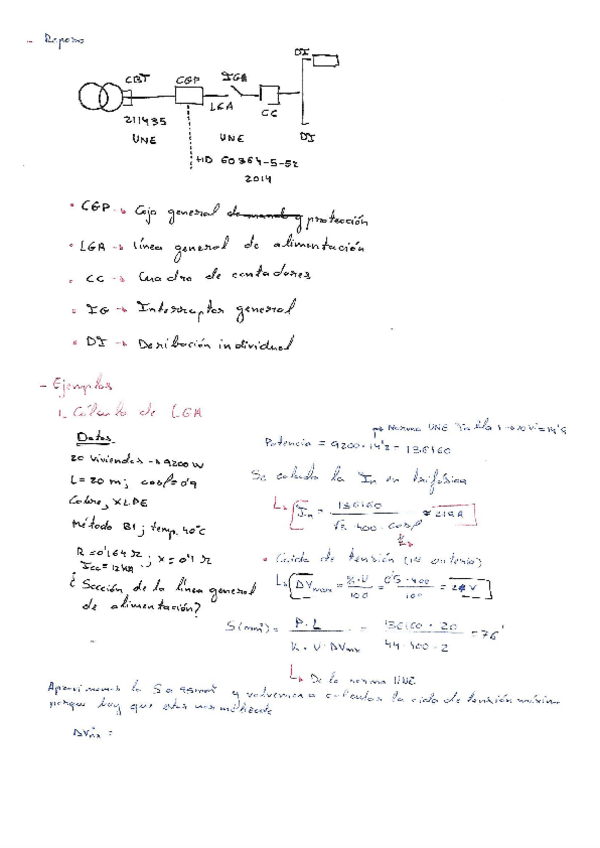 - Repaso
DI
CBT CGP IGA
LGA CC
211435
UNE UNE DI
HD 60364-5-52
2014
• CGP → Caja general de mando y protección
• LGA → línea general de alimentación
• CC → Cuadro de contadores
• IG → Interruptor general
• DI → Deribación individual
- Ejemplos
1. Cálculo de LGA
Datos
20 viviendas → 9200 W
L = 20 m; cosφ = 0'9
Cobre, XLPE
Método B1; temp. 40°C
R = 0'164 Ω; X = 0'1 Ω
Icc = 12 kA
¿Sección de la línea general
de alimentación?
→ Norma UNE
Potencia = 9200 · 14'8 = 136160
Se calcula la In en trifásica
In = 136160 / √3 · 400 · cosφ ≈ 218A
• Caída de tensión
ΔVmax = %·U / 100 = 0'5 · 400 / 100 = 2 V
S(mm²) = P · L / K · U · ΔVmax = 136160 · 20 / 44 · 400 · 2 = 76'
De la norma UNE
Aproximamos la S a 95mm² y volvemos a calcular la caída de tensión máxima
porque hay que estar
ΔVmax =